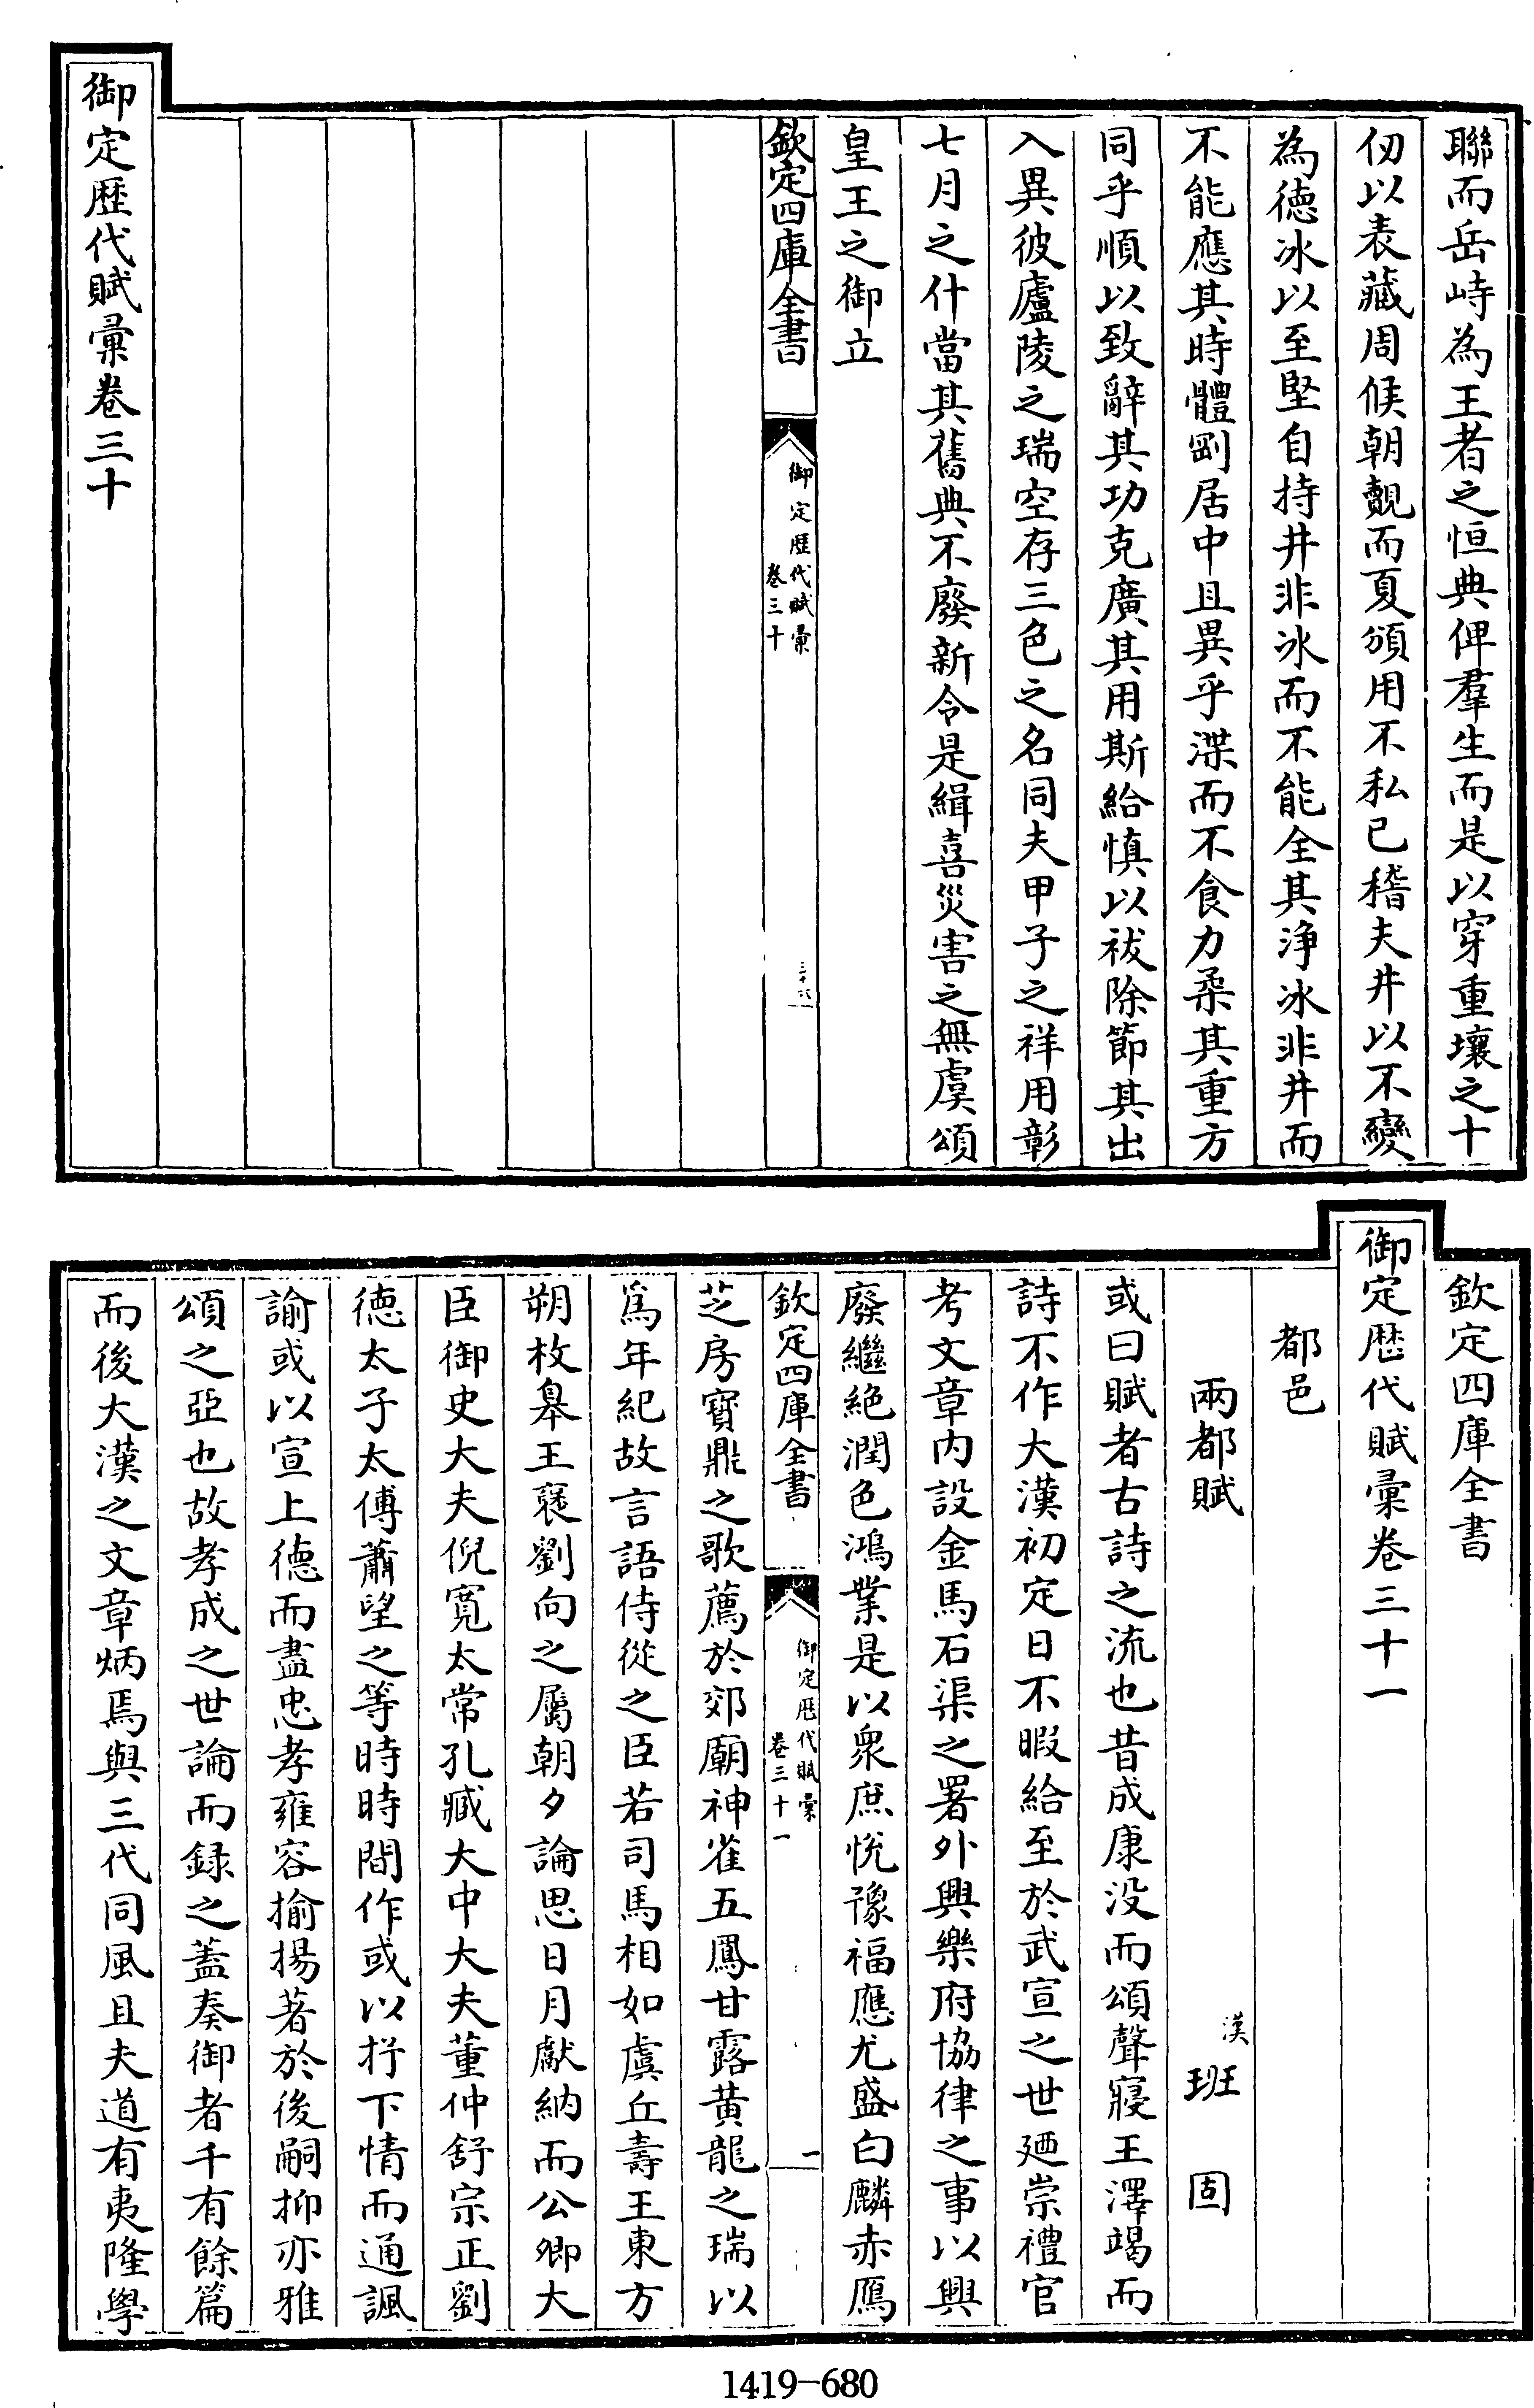 聯而岳峙為王者之恒典俾羣生而是以穿重壤之十
仞以表藏周候朝覿而夏頒用不私已稽夫井以不變
為德冰以至堅自持井非冰而不能全其淨冰非井而
不能應其時體剛居中且異乎渫而不食力柔其重方
同乎順以致辭其功克廣其用斯給慎以祓除節其出
入異彼廬陵之瑞空存三色之名同夫甲子之祥用彰
七月之什當其舊典不廢新令是緝喜災害之無虞頌
皇王之御立
欽定四庫全書
御定歷代賦彙
卷三十
三十六
御定歷代賦彙卷三十
欽定四庫全書
御定歷代賦彙卷三十一
都邑
兩都賦
漢
班固
或曰賦者古詩之流也昔成康没而頌聲寢王澤竭而
詩不作大漢初定日不暇給至於武宣之世廼崇禮官
考文章内設金馬石渠之署外興樂府協律之事以興
廢繼絶潤色鴻業是以衆庶悅豫福應尤盛白麟赤鴈
欽定四庫全書
御定歷代賦彙
卷三十一
一
芝房寳鼎之歌薦於郊廟神雀五鳳甘露黄龍之瑞以
爲年紀故言語侍從之臣若司馬相如虞丘壽王東方
朔枚臯王褒劉向之屬朝夕論思日月獻納而公卿大
臣御史大夫倪寬太常孔臧大中大夫董仲舒宗正劉
德太子太傅蕭望之等時時間作或以抒下情而通諷
諭或以宣上德而盡忠孝雍容揄揚著於後嗣抑亦雅
頌之亞也故孝成之世論而録之蓋奏御者千有餘篇
而後大漢之文章炳焉與三代同風且夫道有夷隆學
1419-680